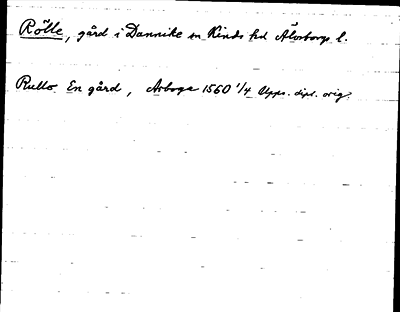 Rölle, gård i Dannike sn Kinds hd Älvsborgs l.
Rullo En gård, Arboga 1560 1/4 Upps. dipl. orig.